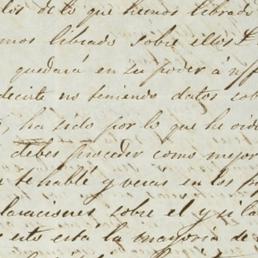 los de lo que hemos librado
mos librado sobre ellos
quedará en su poder á n/
decirte no teniendo datos sob
ha sido por lo que he ord
debes proceder como mejor
te hablé y veras en los
laraciones sobre el y si la
esta la mayoria de